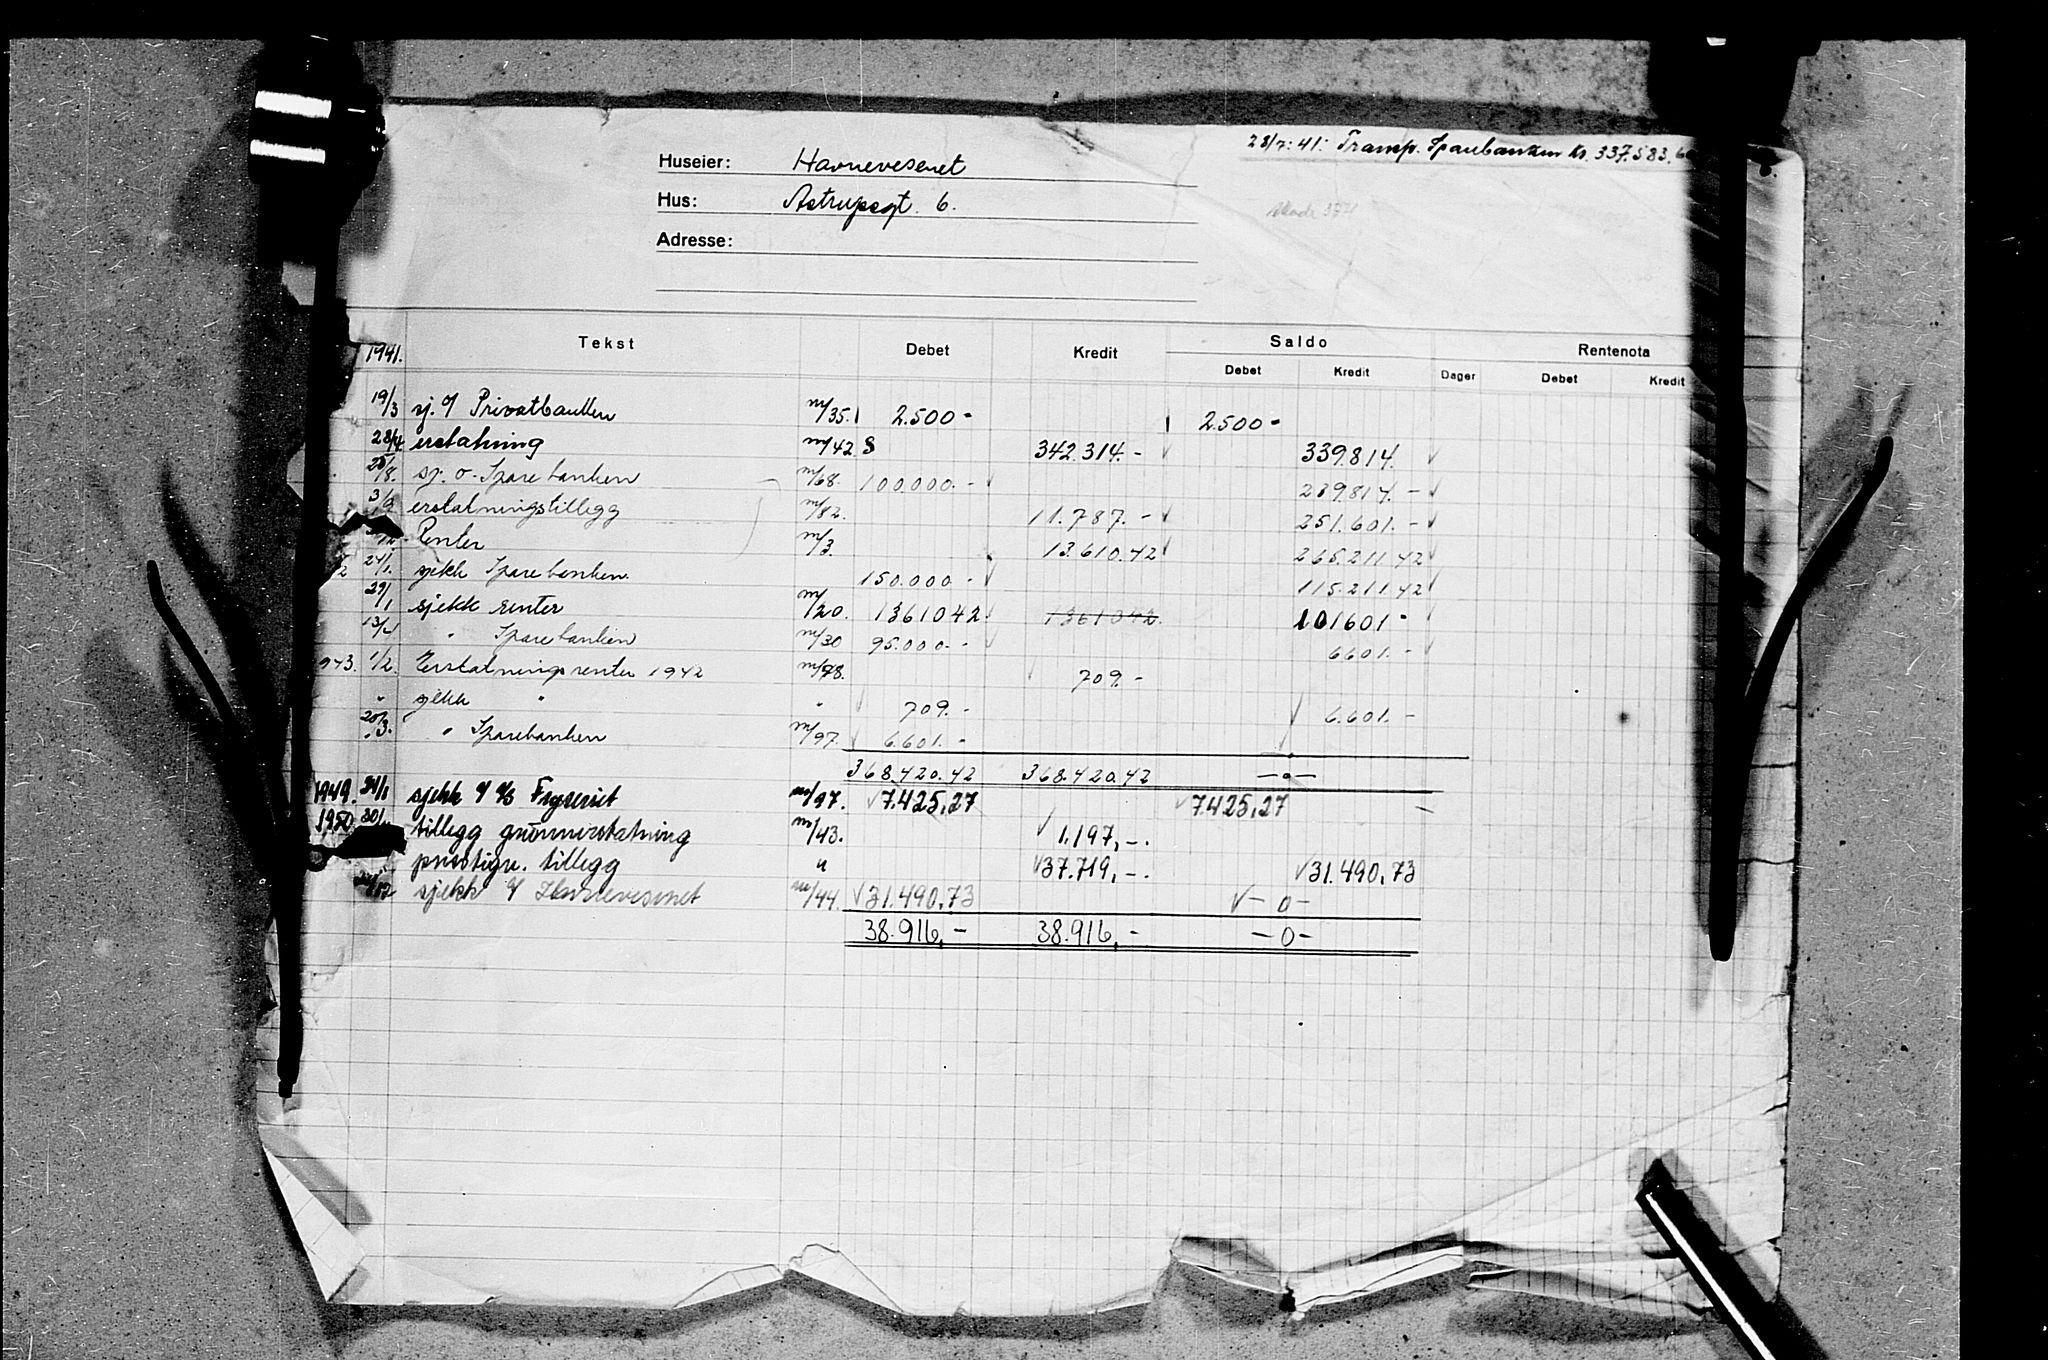 28/7: 41: Transp. Sparebanken kr. 337.583,60
Huseier: Havnevesenet
Hus: Astrupsgt. 6.
Skade 374
Adresse:
1941. Tekst Debet Kredit Saldo Rentenota
Debet Kredit Dager Debet Kredit
19/3 sj. o/ Privatbanken m/35. 2.500- 2.500-
28/4. erstatning m/42 S 342.314.- 339.814.
/8. sj. o. Sparebanken m/68. 100.000.- 239.814.-
3/9 erstatningstillegg m/82. 11.787.- 251.601.-
Renter m/3. 13.610.42 265.211.42
2 24/1. sjekk Sparebanken. 150.000- 115.211.42
29/1 sjekk renter m/20. 1361042 1361042 101601-
13/4 " Sparebanken m/30 95.000.- 6601.-
943. 1/2. Erstatningsrenter 1942 m/98. 709.-
" sjekk " " 709.- 6.601.-
20/3. " Sparebanken m/97. 6.601.-
368.420.42 368.420.42 -o-
1949. 24/1 sjekk o/ A/S Fryseriet m/97. 7.425,27 7.425,27
1950 30/ tillegg grunnerstatning m/43. 1.197,-.
prisstign. tillegg " 37.719,-. 31.490,73
sjekk o/ Havnevesenet m/44. 31.490,73 -0-
38.916,- 38.916,- -0-